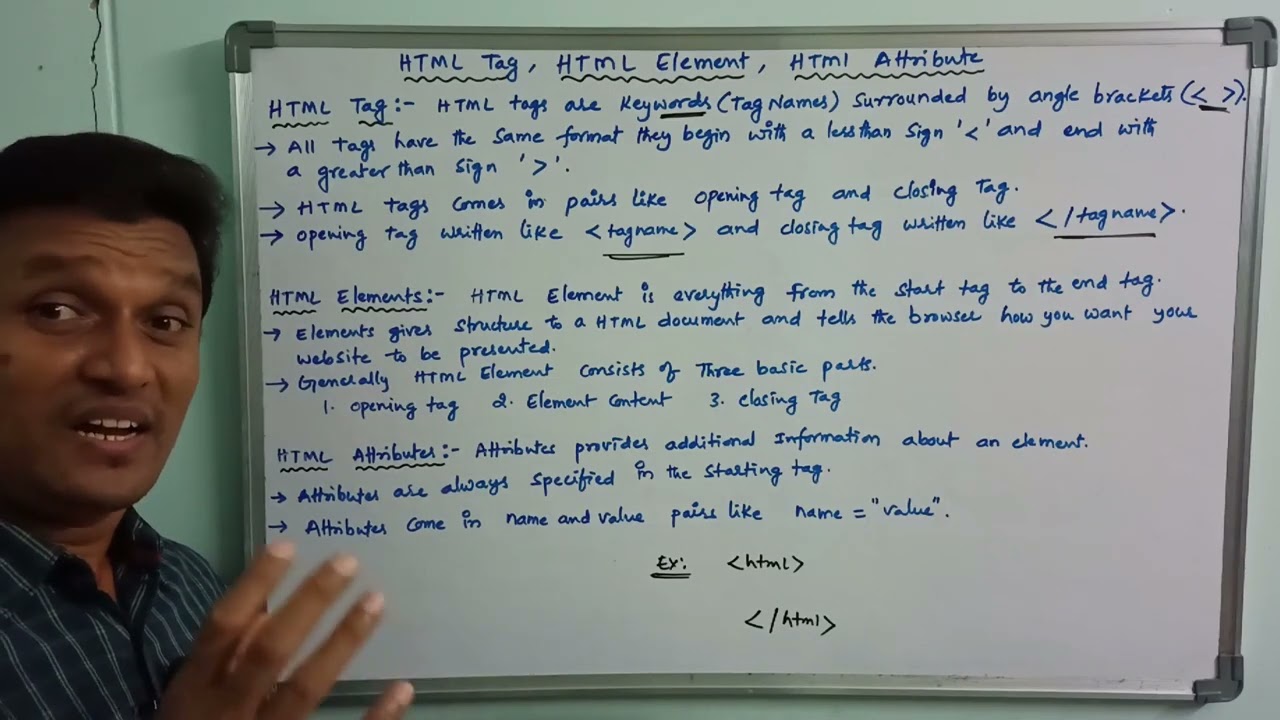 HTML Tag, HTML Element, HTMl Attribute
HTML Tag:- HTML tags are Keywords (Tag Names) Surrounded by angle brackets (< >).
→ All Tags have the Same format they begin with a less than Sign '<' and end with
a greater than Sign '>'.
→ HTML tags Comes in pairs like opening tag and closing Tag.
→ opening tag written like <tagname> and closing tag written like </tagname>.
HTML Elements:- HTML Element is everything from the start tag to the end tag.
→ Elements gives structure to a HTML document and tells the browser how you want your
website to be presented.
→ Generally HTML Element Consists of Three basic parts.
1. opening tag 2. Element Content 3. closing Tag
HTML Attributes:- Attributes provides additional Information about an element.
→ Attributes are always specified in the starting tag.
→ Attributes Come in name and value pairs like name = "value".
Ex: <html>
</html>